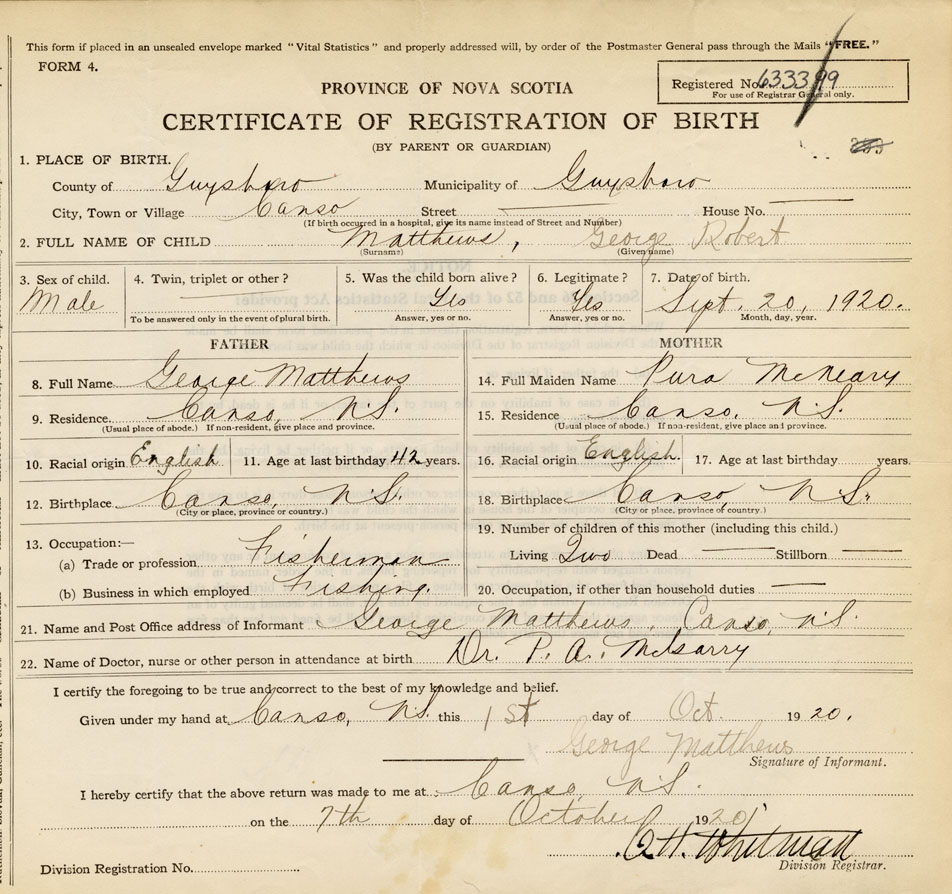 This form if placed in an unsealed envelope marked "Vital Statistics" and properly addressed will, by order of the Postmaster General pass through the Mails "FREE."
FORM 4.
Registered No. 633399
For use of Registrar General only.
PROVINCE OF NOVA SCOTIA
CERTIFICATE OF REGISTRATION OF BIRTH
(BY PARENT OR GUARDIAN)
1. PLACE OF BIRTH.
County of Guysboro Municipality of Guysboro
City, Town or Village Canso Street House No.
(If birth occurred in a hospital, give its name instead of Street and Number)
2. FULL NAME OF CHILD Matthews, George Robert
(Surname) (Given name)
3. Sex of child. 4. Twin, triplet or other? 5. Was the child born alive? 6. Legitimate? 7. Date of birth.
Male Yes Yes Sept. 20, 1920.
To be answered only in the event of plural birth. Answer, yes or no. Answer, yes or no. Month, day, year.
FATHER
8. Full Name George Matthews
9. Residence. Canso, N.S.
(Usual place of abode.) If non-resident, give place and province.
10. Racial origin English 11. Age at last birthday 42 years.
12. Birthplace Canso, N.S.
(City or place, province or country.)
13. Occupation:—
(a) Trade or profession Fisherman
(b) Business in which employed Fishing.
MOTHER
14. Full Maiden Name McNeary
15. Residence Canso, N.S.
(Usual place of abode.) If non-resident, give place and province.
16. Racial origin English. 17. Age at last birthday years.
18. Birthplace Canso N.S.
(City or place, province or country.)
19. Number of children of this mother (including this child.)
Living Two Dead Stillborn
20. Occupation, if other than household duties
21. Name and Post Office address of Informant George Matthews, Canso, N.S.
22. Name of Doctor, nurse or other person in attendance at birth Dr. P. A. McGarry
I certify the foregoing to be true and correct to the best of my knowledge and belief.
Given under my hand at Canso, N.S. this 1st day of Oct. 1920.
George Matthews
Signature of Informant.
I hereby certify that the above return was made to me at Canso, N.S.
on the 7th day of October 1920
Whitman
Division Registrar.
Division Registration No.